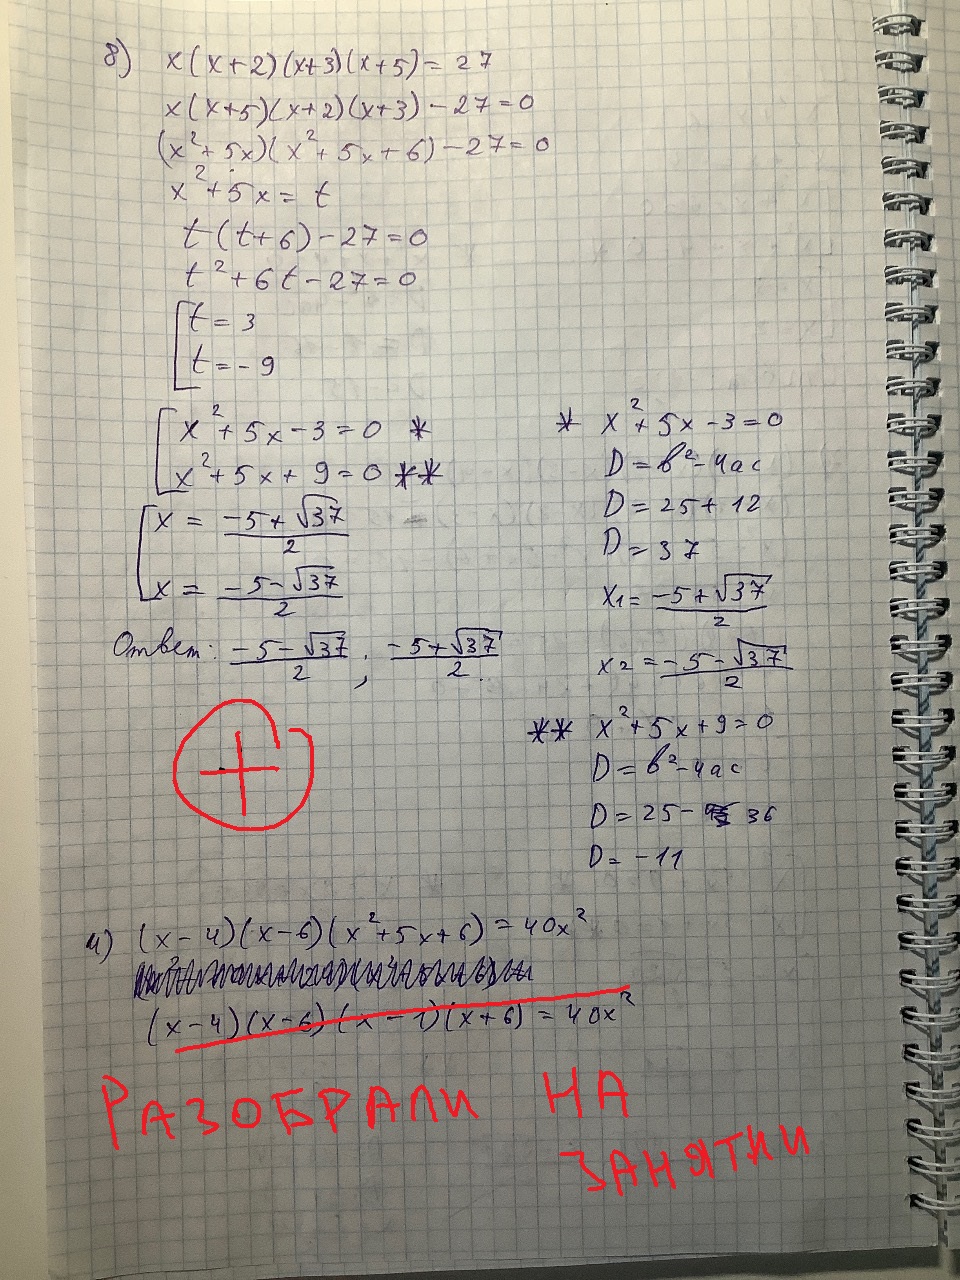 8) x(x+2)(x+3)(x+5)=27
x(x+5)(x+2)(x+3)-27=0
(x²+5x)(x²+5x+6)-27=0
x²+5x=t
t(t+6)-27=0
t²+6t-27=0
[t=3
t=-9
[x²+5x-3=0 *
x²+5x+9=0 **
[x = (-5+√37)/2
x = (-5-√37)/2
Ответ: (-5-√37)/2 ; (-5+√37)/2.
* x²+5x-3=0
D=b²-4ac
D=25+12
D=37
x1=(-5+√37)/2
x2=(-5-√37)/2
** x²+5x+9=0
D=b²-4ac
D=25-36
D=-11
и) (x-4)(x-6)(x²+5x+6)=40x²
(x-4)(x-6)(x-1)(x+6)=40x²
РАЗОБРАЛИ НА
ЗАНЯТИИ